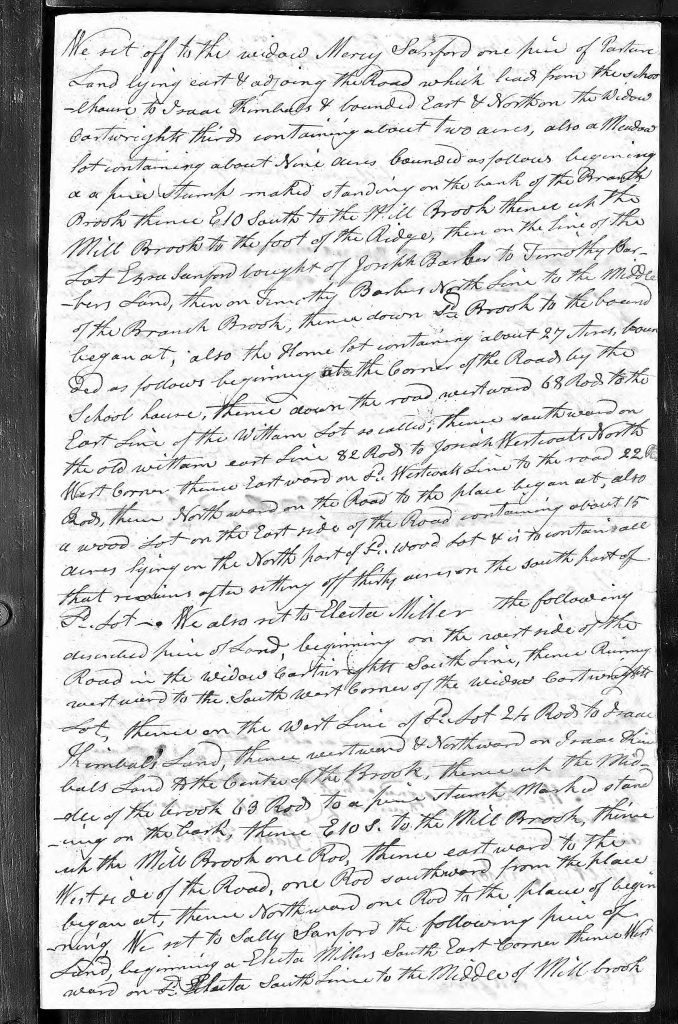 We set off to the widow Mercy Sanford one piece of Pasture
Land lying east & adjoing the Road which lead from the schoo
-lhouse to Isaac Kimbals & bounded East & North on the Widow
Cartwrights thirds containing about two acres, also a Meadow
lot containing about Nine acres bounded as follows begining
a a pine stump maked standing on the bank of the Branch
Brook thence E10 South to the Mill Brook thence up the
Mill Brook to the foot of the Ridge, then on the line of the
Lot Ezra Sanford bought of Joseph Barber to Timothy Bar-
-bers Land, then on Timothy Barbers North Line to the Middle
of the Branch Brook, thence down Sd Brook to the bound
began at, also the Home lot containing about 27 Acres, boun
ded as follows beginning at the Corner of the Roads by the
School house, thence down the road westward 68 Rods to the
East Line of the Wittam Lot so called, thence southward on
the old wittam east Line 82 Rods to Josiah Westcoats North
West Corner thence Eastward on Sd. Westcoats Line to the road 22
Rods, thence Northward on the Road to the place began at, also
a wood Lot on the East side of the Road containing about 15
acres lying on the North part of Sd. wood Lot & is to contain all
that remains after setting off thirty acres on the south part of
Sd. Lot — We also set to Electa Miller the following
described piece of Land, beginning on the west side of the
Road in the widow Cartwrights South Line, thence Runing
westward to the South West Corner of the widow Cartwrights
Lot, thence on the West Line of Sd. Lot 24 Rods to Isaac
Kimbals Land, thence westward & Northward on Isaac Kim
bals Land to the Center of the Brook, thence up the Mid-
-dle of the brook 63 Rods to a pine stump Marked stand
-ing on the bank, thence E10 S. to the Mill Brook, thence
up the Mill Brook one Rod, thence eastward to the
West side of the Road, one Rod southward from the place
began at, thence Northward one Rod to the place of begin
-ning, We set to Sally Sanford the following piece of
Land, beginning a Electa Millers South East Corner thence West
ward on Sd. Electa South Line to the Middle of Mill brook